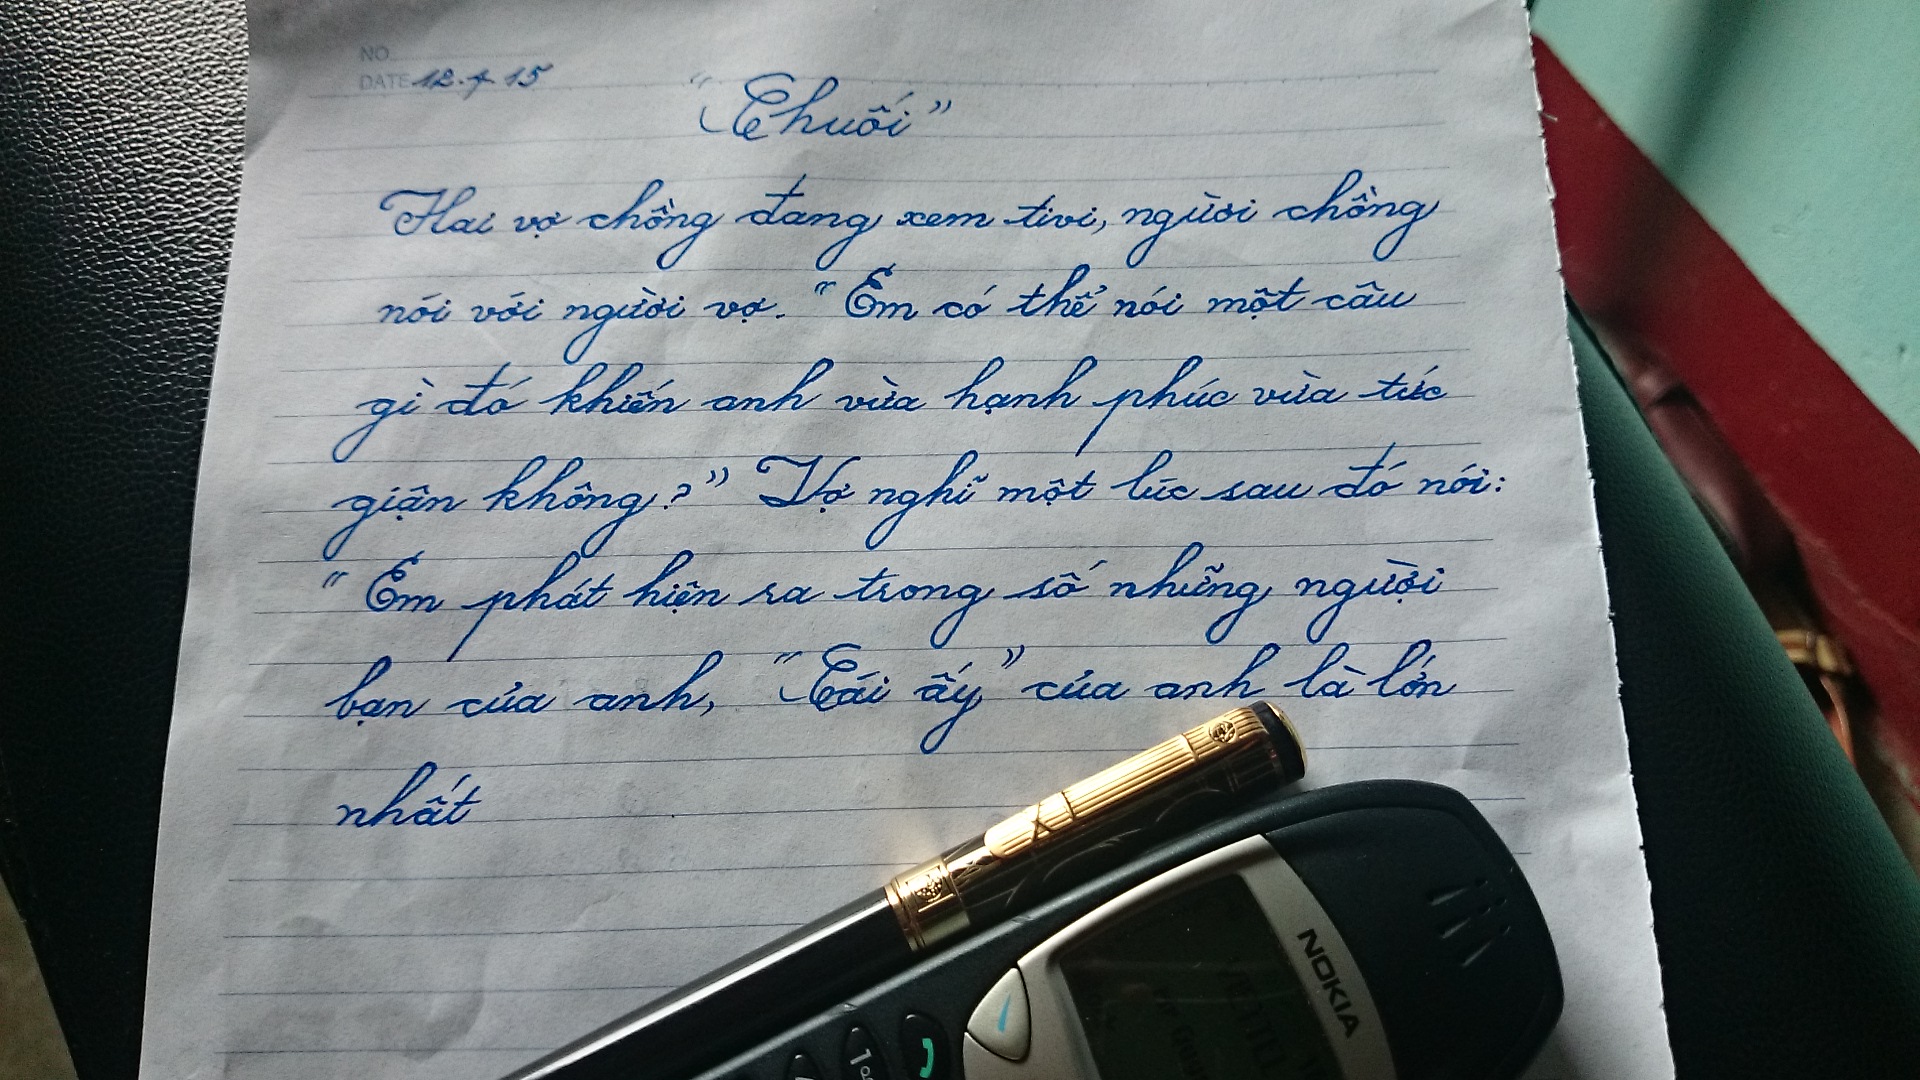 NO.
DATE 12.7.15
"Chuối"
Hai vợ chồng đang xem tivi, người chồng
nói với người vợ. "Em có thể nói một câu
gì đó khiến anh vừa hạnh phúc vừa tức
giận không?" Vợ nghĩ một lúc sau đó nói:
"Em phát hiện ra trong số những người
bạn của anh, "Cái ấy" của anh là lớn
nhất
NOKIA
1